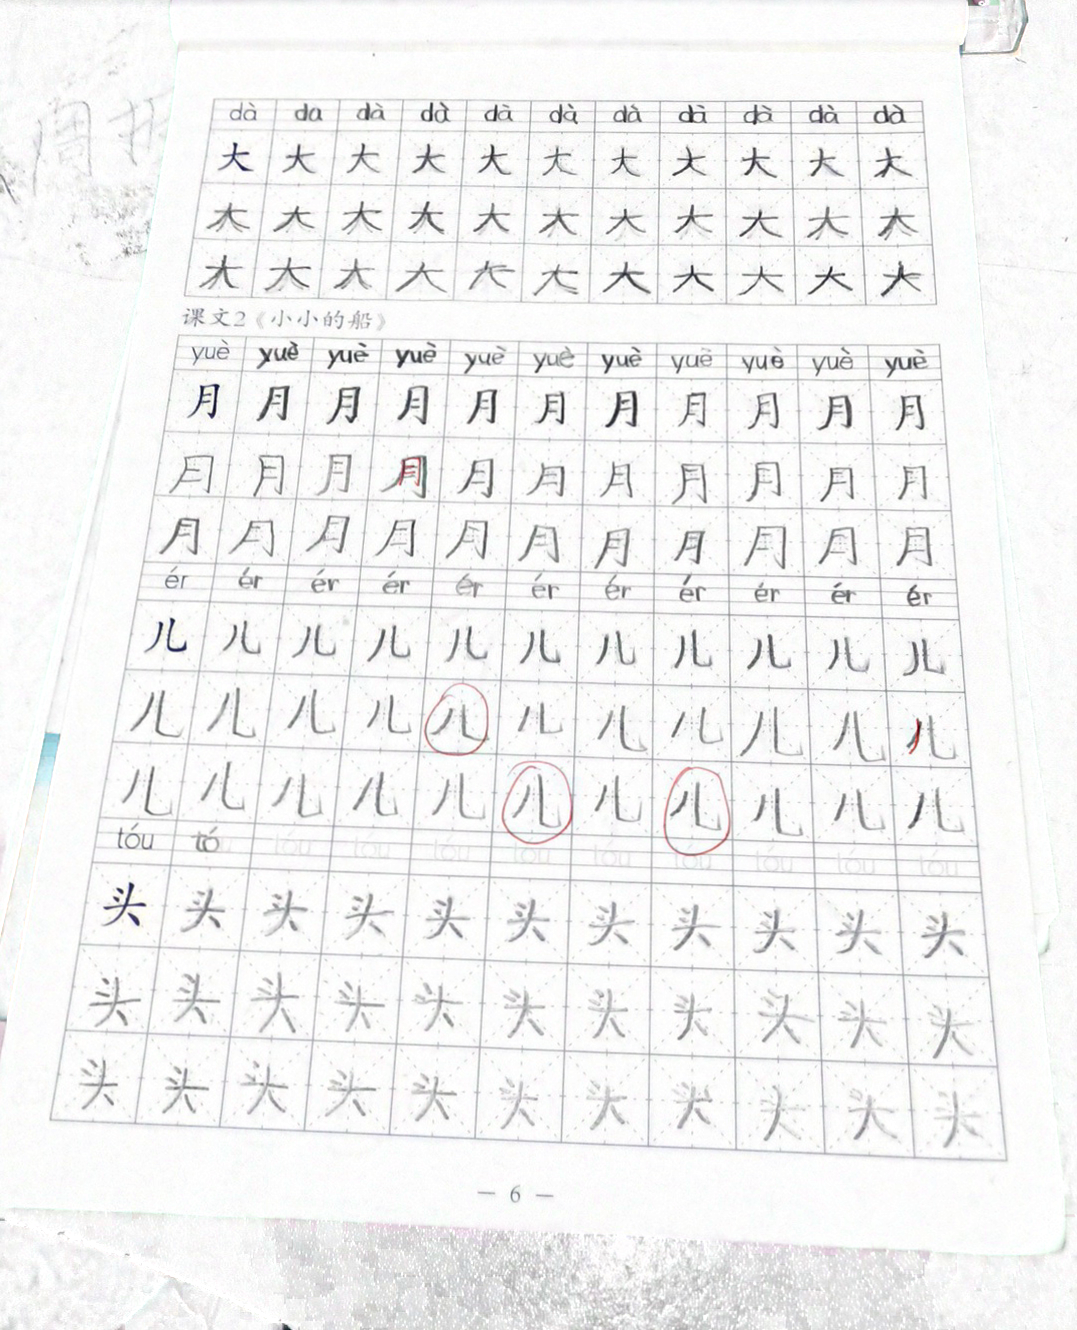 dà da dà dà dà dà dà dà dà dà dà
大 大 大 大 大 大 大 大 大 大 大
大 大 大 大 大 大 大 大 大 大 大
大 大 大 大 大 大 大 大 大 大 大
课文2《小小的船》
yuè yuè yuè yuè yuè yuè yuè yuè yuè yuè yuè
月 月 月 月 月 月 月 月 月 月 月
月 月 月 月 月 月 月 月 月 月 月
月 月 月 月 月 月 月 月 月 月 月
ér ér ér ér ér ér ér ér ér ér ér
儿 儿 儿 儿 儿 儿 儿 儿 儿 儿 儿
儿 儿 儿 儿 儿 儿 儿 儿 儿 儿 儿
儿 儿 儿 儿 儿 儿 儿 儿 儿 儿 儿
tóu tóu tóu tóu tóu tóu tóu tóu tóu tóu tóu
头 头 头 头 头 头 头 头 头 头 头
头 头 头 头 头 头 头 头 头 头 头
头 头 头 头 头 头 头 头 头 头 头
— 6 —